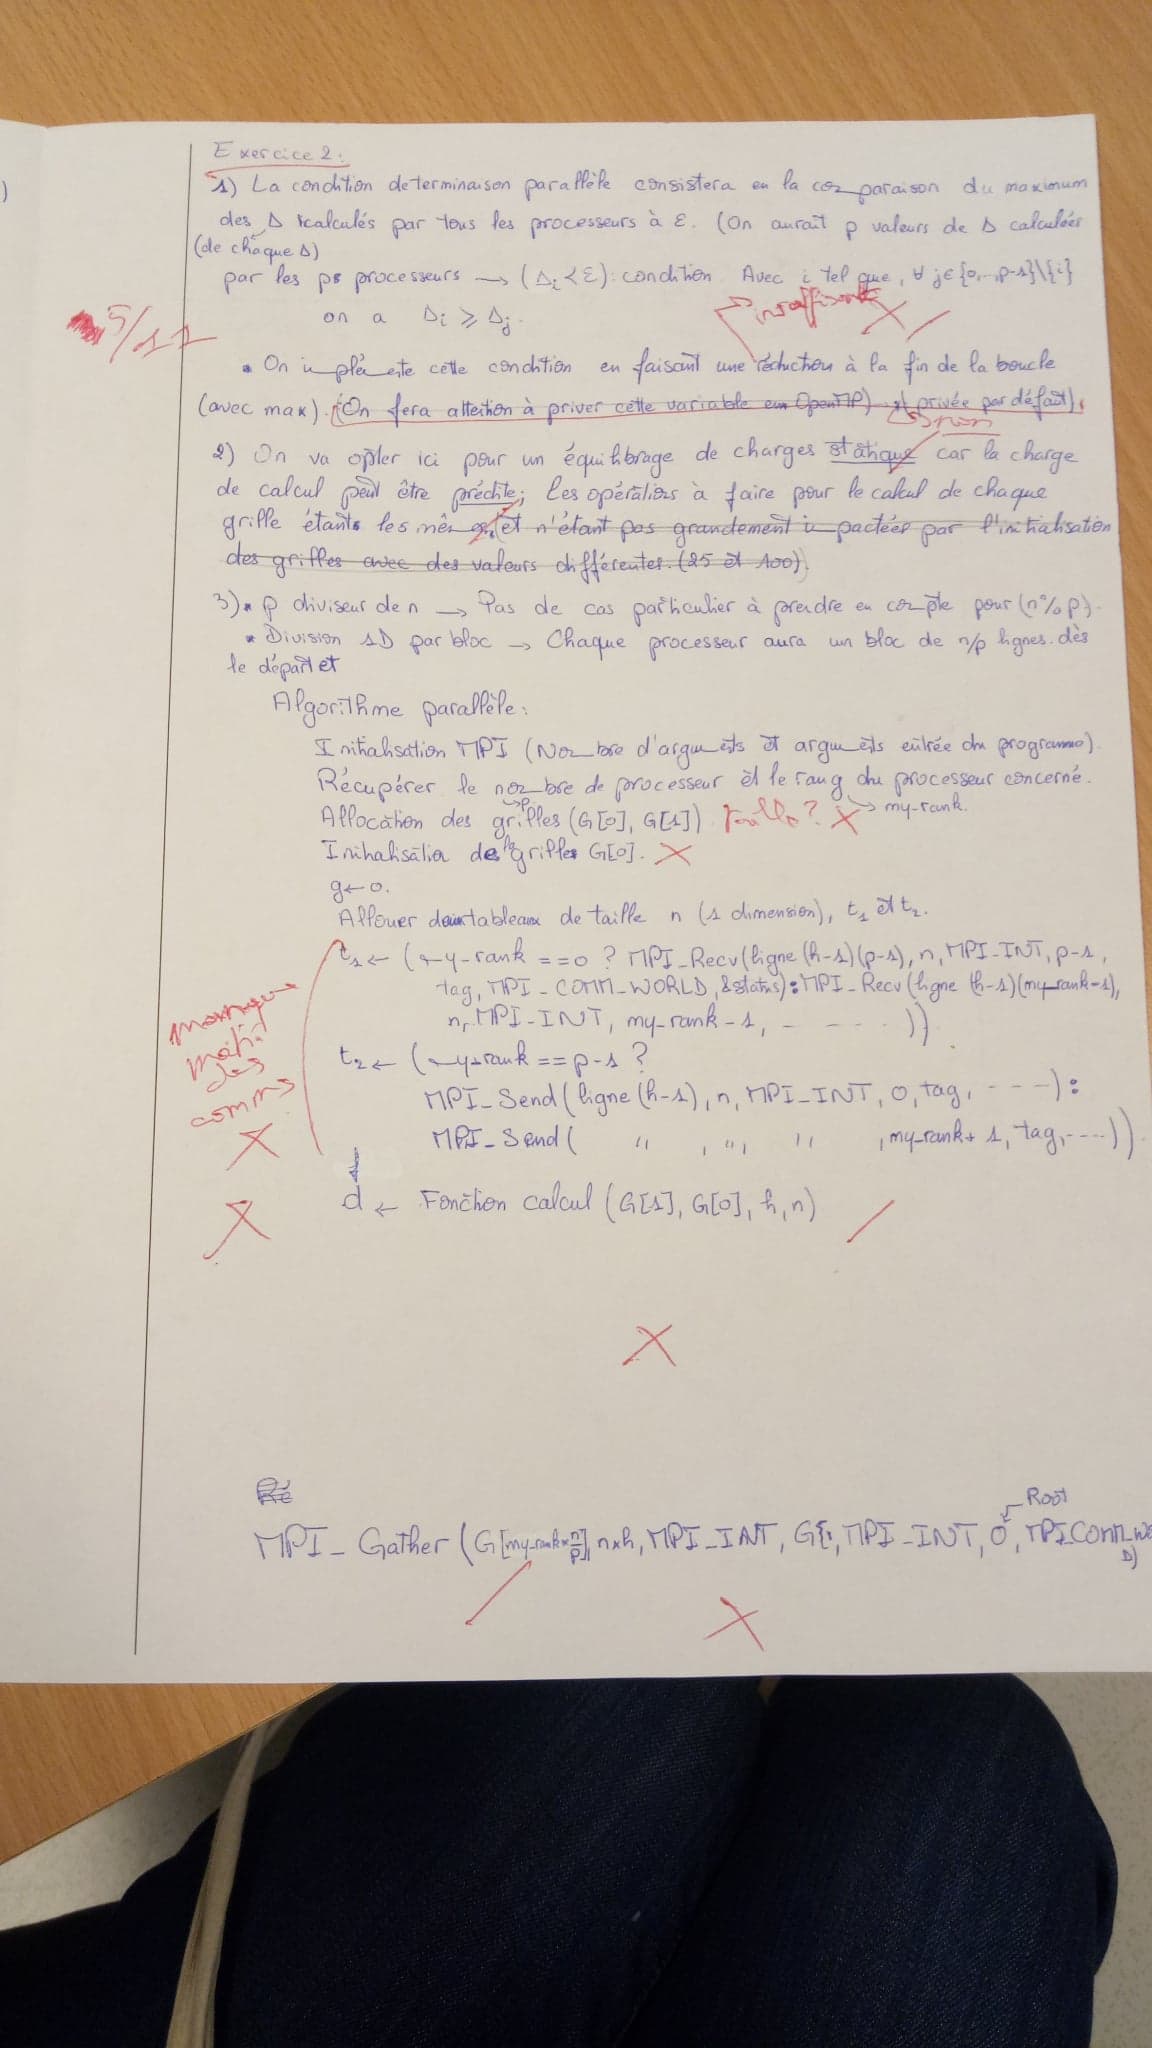 Exercice 2:
1) La condition de terminaison parallèle consistera en la comparaison du maximum
des Δ calculés par tous les processeurs à ε. (On aurait p valeurs de Δ calculées
(de chaque Δ)
par les ps processeurs → (Δi < ε): condition. Avec i tel que, ∀ j ∈ {0,..,p-1}\{i}
on a Δi ≥ Δj.
insuffisant
5/11
• On implémente cette condition en faisant une réduction à la fin de la boucle
(avec max). (On fera attention à priver cette variable en OpenMP) privée par défaut).
non
2) On va opter ici pour un équilibrage de charges statique car la charge
de calcul peut être prédite; les opérations à faire pour le calcul de chaque
grille étants les mêmes, et n'étant pas grandement impactées par l'initialisation
des grilles avec des valeurs différentes. (25 et 100).
3) • p diviseur de n → Pas de cas particulier à prendre en compte pour (n%p).
• Division 1D par bloc → Chaque processeur aura un bloc de n/p lignes. dès
le départ et
Algorithme parallèle:
Initialisation MPI (Nombre d'arguments et arguments entrée du programme).
Récupérer le nombre de processeur et le rang du processeur concerné.
→ p → my-rank.
Allocation des grilles (G[0], G[1]) taille?
Initialisation de la grille G[0].
g ← 0.
Allouer deux tableaux de taille n (1 dimension), t1 et t2.
t1 ← (my-rank == 0 ? MPI_Recv(ligne (h-1)(p-1), n, MPI_INT, p-1,
tag, MPI_COMM_WORLD, &status): MPI_Recv(ligne (h-1)(my_rank-1),
n, MPI_INT, my_rank-1, - - - - - ))
manque
moitié
des
comms
t2 ← (my-rank == p-1 ?
MPI_Send(ligne(h-1), n, MPI_INT, 0, tag, - - - -):
MPI_Send( " , " , " , my_rank+1, tag, - - - -))
d ← Fonction calcul (G[1], G[0], h, n)
Ré
Root
MPI_Gather (G[my_rank*n/p], n*h, MPI_INT, G[, MPI_INT, 0, MPI_COMM_WO
D)